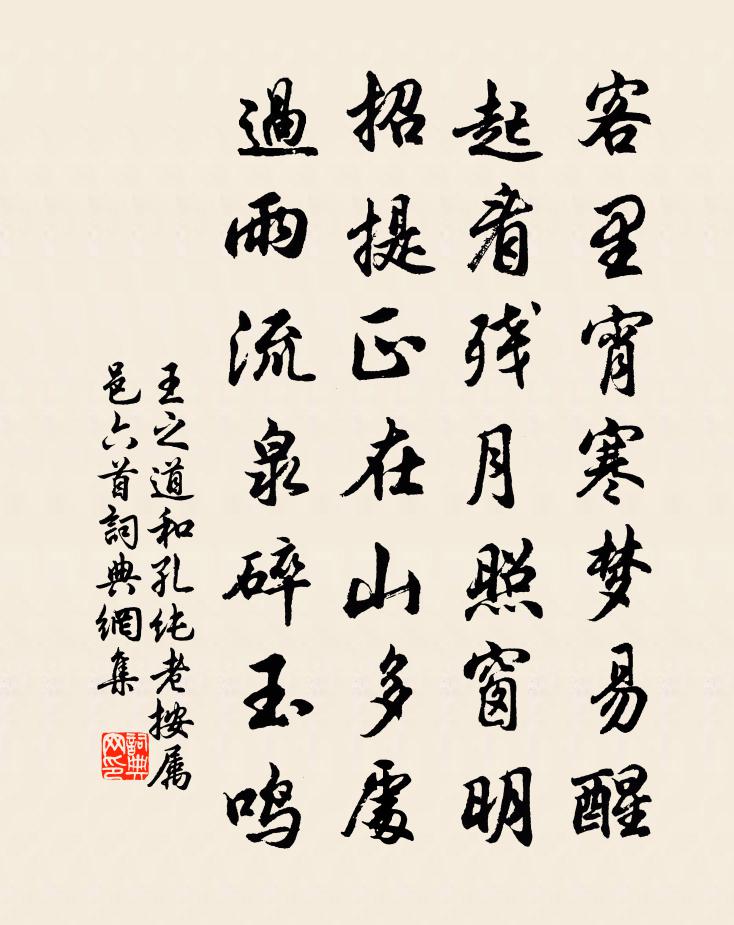 客里宵寒梦易醒
起看残月照窗明
招提正在山多處
過雨流泉碎玉鸣
王之道和孔纯老按属
邑六首詞典網集
詞典网印